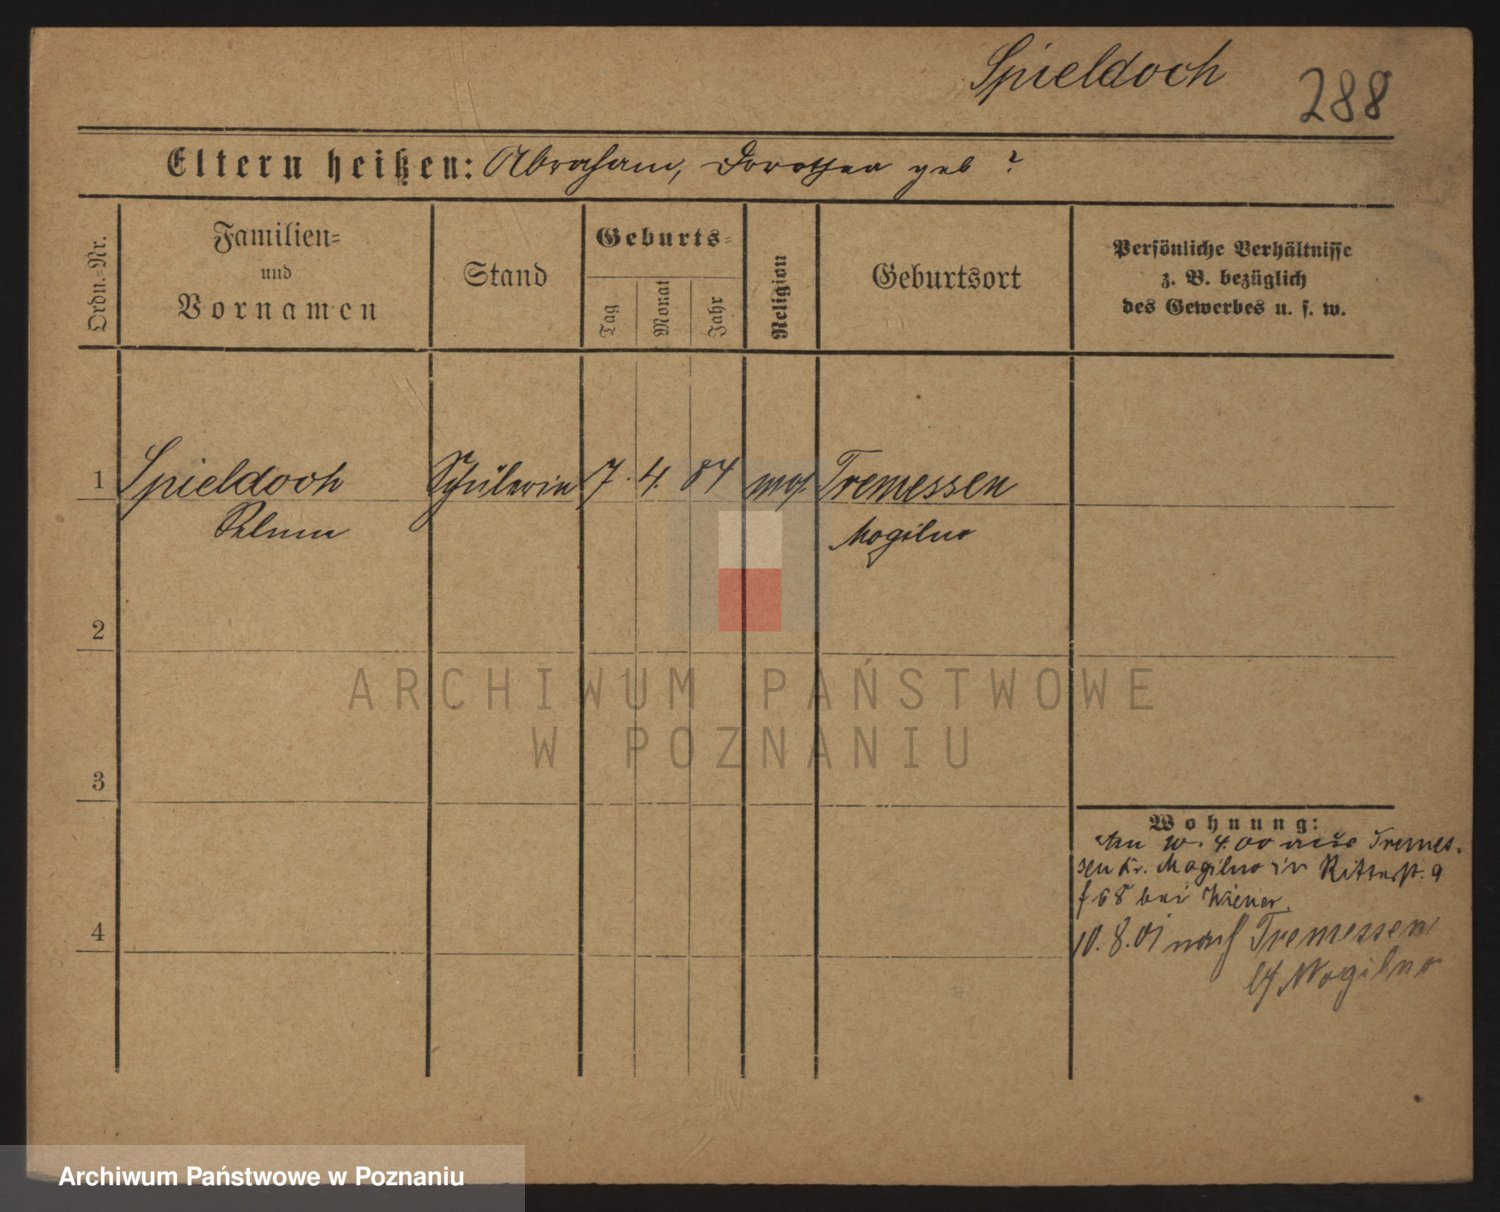 Spieldoch
288
Eltern heißen: Abraham, Dorothea geb ?
Ordn.-Nr.
Familien-
und
Vornamen
Stand
Geburts-
Tag
Monat
Jahr
Religion
Geburtsort
Persönliche Verhältnisse
z. B. bezüglich
des Gewerbes u. s. w.
1 Spieldoch Schülerin 7. 4. 84 mos. Tremessen
Mogilno
2
ARCHIWUM PAŃSTWOWE
W POZNANIU
3
Wohnung:
Am 10. 4. 00 aus Tremes-
sen Kr. Mogilno in Ritterst. 9
bei Wiener.
10. 8. 01 nach Tremessen
Mogilno
4
Archiwum Państwowe w Poznaniu